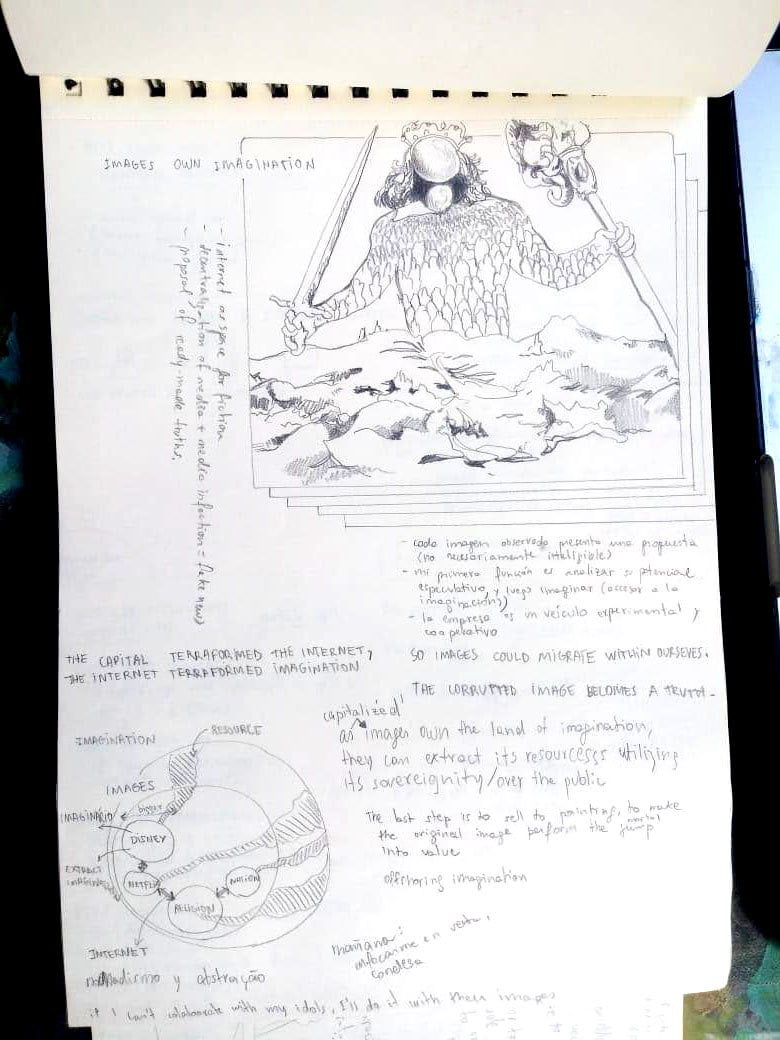 IMAGES OWN IMAGINATION
- internet as space for fiction
- decentralization of media + media infection = fake news
- proposal of ready made truths.
- cada imagem observada presenta una propuesta
(no necesariamente inteligible)
- mi primera función es analizar su potencial
especulativo, y luego imaginar (accesar a la
imaginación)
- la empresa es un veículo experimental y
cooperativo
THE CAPITAL TERRAFORMED THE INTERNET,
THE INTERNET TERRAFORMED IMAGINATION
SO IMAGES COULD MIGRATE WITHIN OURSEVES.
THE CORRUPTED IMAGE BECOMES A TRUTH.
capitalized
as images own the land of imagination,
they can extract its resourcess utilizing
its sovereignity/over the public
The last step is to sell to painting, to make
the original image perform the mortal jump
into value
offshoring imagination
mañana:
enfocarme en
condesa
RESOURCE
IMAGINATION
IMAGES
bigger
IMAGINÁRIO
DISNEY
EXTRACT
NETFLIX
NATION
RELIGION
INTERNET
nomadismo y abstração
if I can't colaborate with my idols, I'll do it with their images